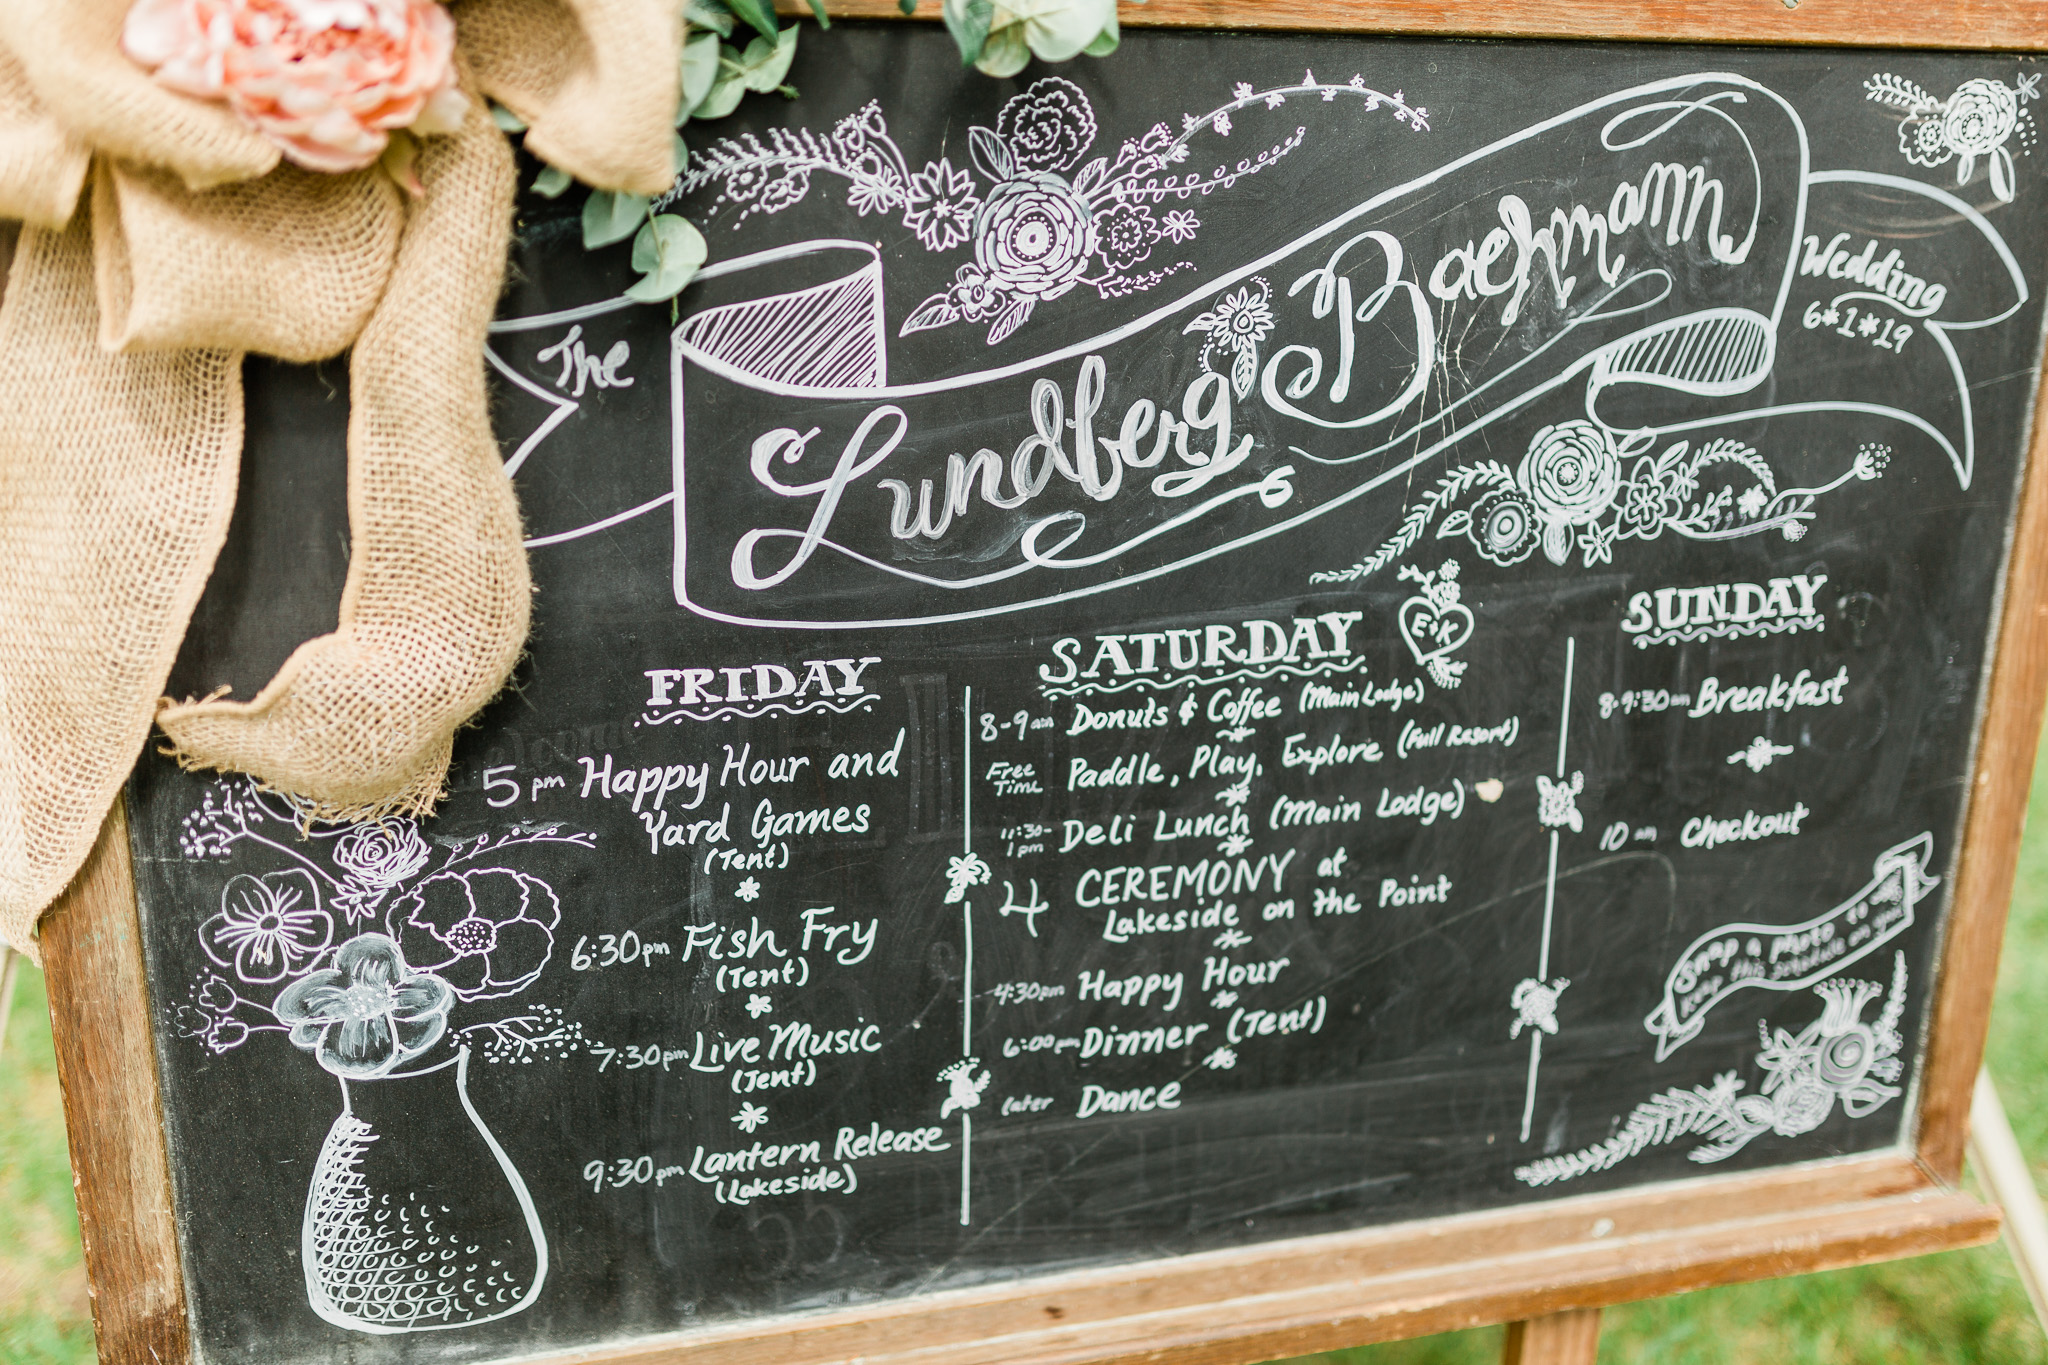 The
Lundberg Bachmann
Wedding
6*1*19
FRIDAY
5 pm Happy Hour and
Yard Games
(Tent)
6:30pm Fish Fry
(Tent)
7:30pm Live Music
(Tent)
9:30pm Lantern Release
(Lakeside)
SATURDAY
E+K
8-9 am Donuts & Coffee (Main Lodge)
Free
Time
Paddle, Play, Explore (Full Resort)
11:30-
1pm
Deli Lunch (Main Lodge)
4 CEREMONY at
Lakeside on the Point
4:30pm Happy Hour
6:00pm Dinner (Tent)
later Dance
SUNDAY
8-9:30am Breakfast
10 am Checkout
Snap a photo to
keep this schedule on you!